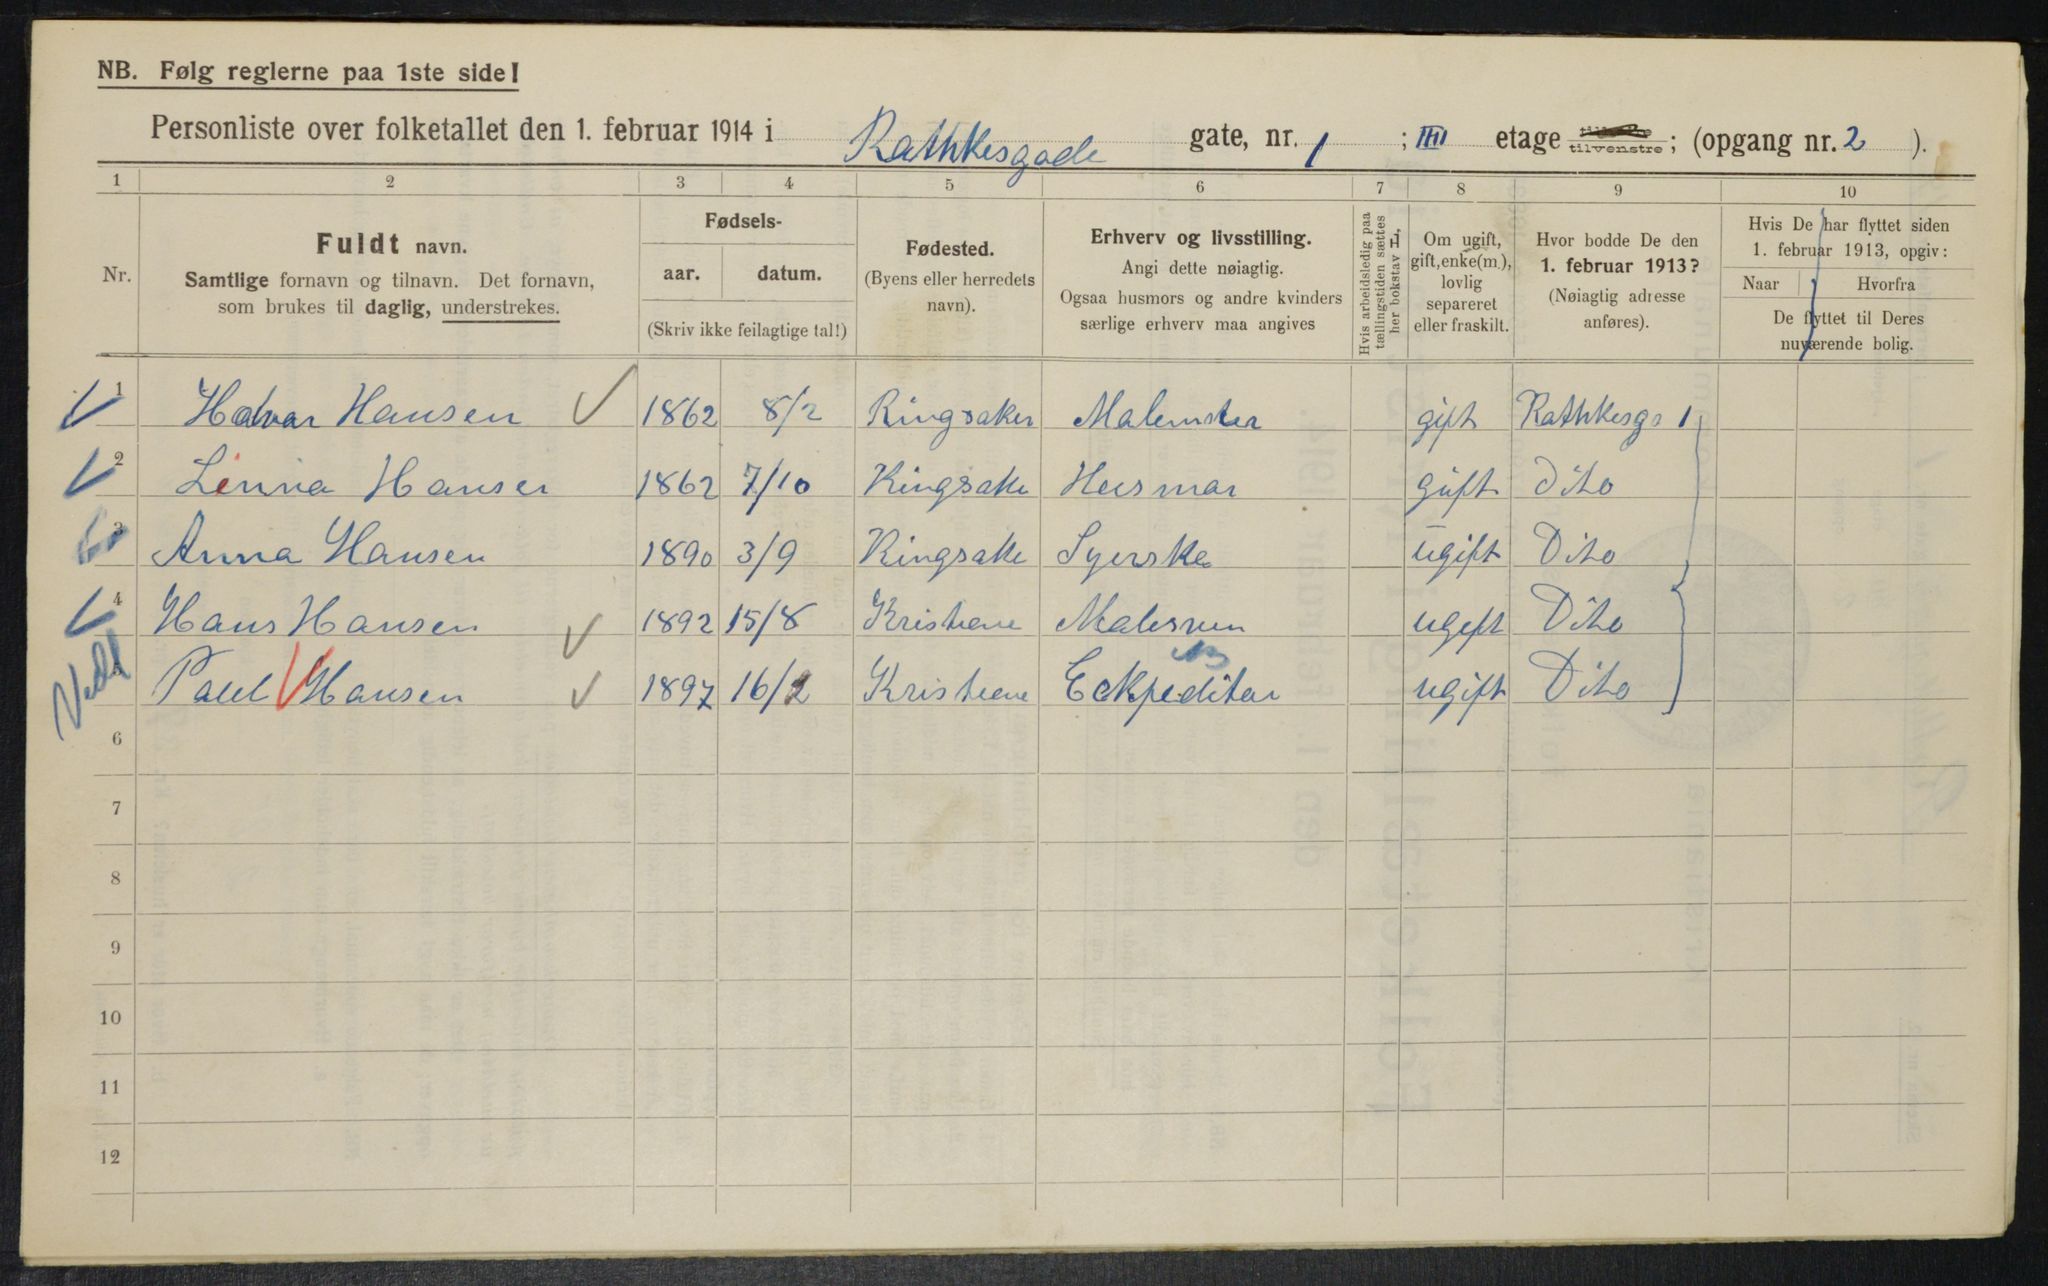 NB. Følg reglerne paa 1ste side!
Personliste over folketallet den 1. februar 1914 i Rathkesgade gate, nr. 1 ; III etage tilvenstre; (opgang nr. 2 ).
1 2 3 4 5 6 7 8 9 10
Nr.
Fuldt navn.
Samtlige fornavn og tilnavn. Det fornavn,
som brukes til daglig, understrekes.
Fødsels-
aar. datum.
(Skriv ikke feilagtige tal!)
Fødested.
(Byens eller herredets
navn).
Erhverv og livsstilling.
Angi dette nøiagtig.
Ogsaa husmors og andre kvinders
særlige erhverv maa angives
Hvis arbeidsledig paa
tællingstiden sættes
her bokstav L,
Om ugift,
gift, enke(m.),
lovlig
separeret
eller fraskilt.
Hvor bodde De den
1. februar 1913?
(Nøiagtig adresse
anføres).
Hvis De har flyttet siden
1. februar 1913, opgiv:
Naar Hvorfra
De flyttet til Deres
nuværende bolig.
1 Halvar Hansen 1862 8/2 Ringsaker Malemster gift Rathkesga 1
2 Linna Hansen 1862 7/10 Ringsake Husmar gift Dito
3 Anna Hansen 1890 3/9 Ringsake Syerske ugift Dito
4 Hans Hansen 1892 15/8 Kristiene Malersven ugift Dito
5 Paul Hansen 1897 16/2 Kristiene Eckpeditar ugift Dito
6
7
8
9
10
11
12